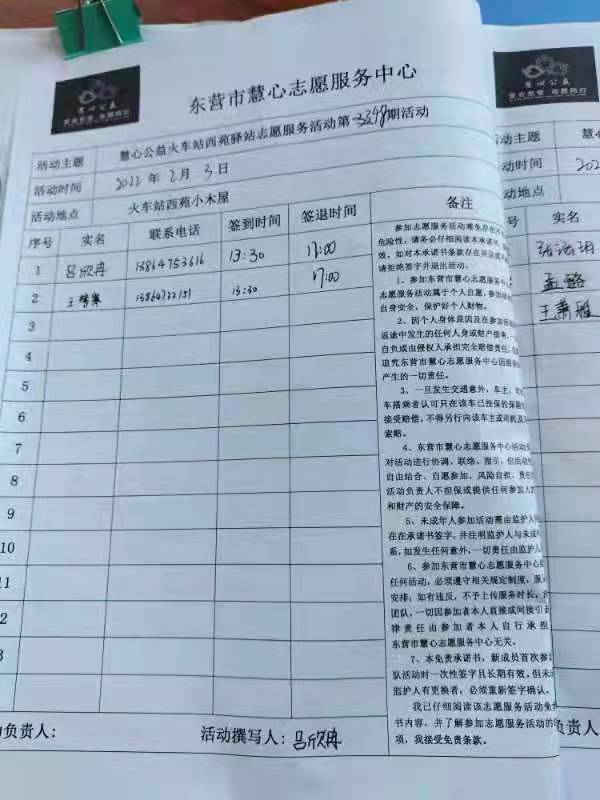 慧心公益
东营市慧心志愿服务中心
活动主题 慧心公益火车站西苑驿站志愿服务活动第3398期活动
活动时间 2022年2月3日
活动地点 火车站西苑小木屋
序号 实名 联系电话 签到时间 签退时间 备注
1 吕欣冉 13864753616 13:30 17:00
2 13:30 17:00
3
4
5
6
7
8
9
10
11
2
3
参加志愿服务活动难免存在
危险性,请务必仔细阅读本承诺书,
效。如对本承诺书条款存在异议或
请拒绝签字并退出活动。
1、参加东营市慧心志愿服务中心
志愿服务活动属于个人自愿,
自身安全,保护好个人财物。
2、因个人身体原因及在参加
返途中发生的任何人身或财产损
自负或由侵权人承担完全赔偿责任,
追究东营市慧心志愿服务中心因
产生的一切责任。
3、一旦发生交通意外,车主、
车搭乘者认可只在该车已投保的保险
接受赔偿,不得另行向该车主或司机及
索赔。
4、东营市慧心志愿服务中心活动
对活动进行协调、联络、指引,但活动
自由结合、自愿参加、风险自担、责任
活动负责人不担保或提供任何参加人
和财产的安全保障。
5、未成年人参加活动需由监护人
在在承诺书签字,并注明监护人与未成
系,如发生任何意外,一切责任由监护人
6、参加东营市慧心志愿服务中心
任何活动,必须遵守相关规定制度,服
安排;如有违反,不予上传服务时长,
团队,一切因参加者本人直接或间接引
律责任由参加者本人自行承担
东营市慧心志愿服务中心无关。
7、本免责承诺书,新成员首次参
队活动时一次性签字且长期有效,但未
监护人有更换者,必须重新签字确认。
我已仔细阅读该志愿服务活动免
书内容,并了解参加志愿服务活动的
项,我接受免责条款。
负责人: 活动撰写人:吕欣冉
慧心公益
活动主题 慧心
活动时间 202
活动地点
序号 实名
1
2 孟璐
3 王萧雅